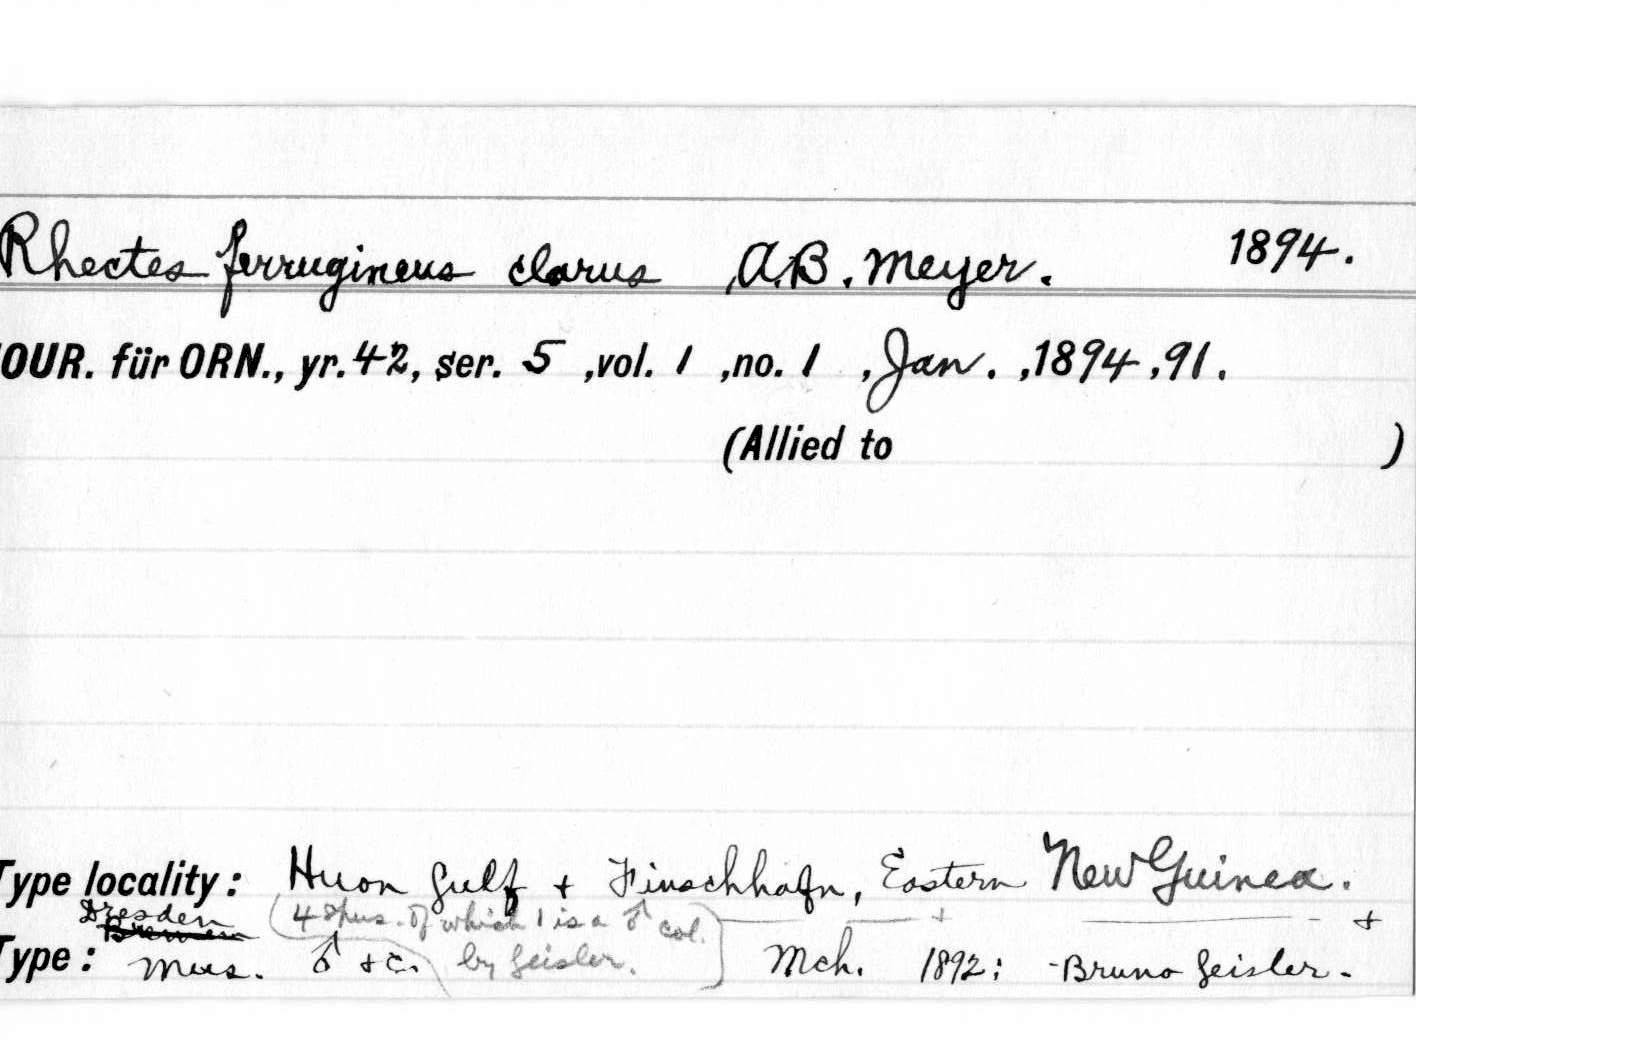 Rhectes ferrugineus clarus A.B. Meyer. 1894.
OUR. für ORN., yr. 42, ser. 5 ,vol. 1 ,no. 1 , Jan. ,1894 ,91.
(Allied to )
Type locality: Huon Gulf + Finschhafn, Eastern New Guinea.
Dresden (4 spms. of which 1 is a ♂ col. +
Bremen
Type: Mus. ♂ +c. by Geisler.) Mch. 1892; -Bruno Geisler-